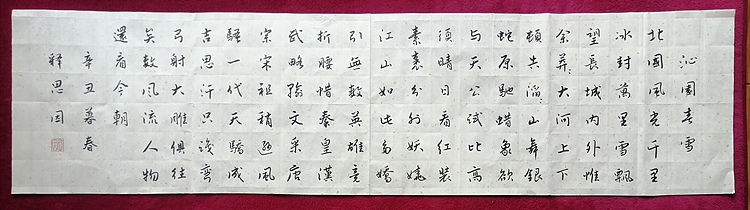 沁園春雪
北國風光千里
冰封萬里雪飄
望長城内外惟
余莽々大河上下
頓失滔々山舞銀
蛇原馳蜡象欲
與天公試比高
須晴日看紅裝
素裹分外妖嬈
江山如此多嬌
引無數英雄竞
折腰惜秦皇漢
武略輸文采唐
宗宋祖稍遜風
騷一代天驕成
吉思汗只識彎
弓射大雕俱往
矣數風流人物
還看今朝
辛丑暮春
釋思因